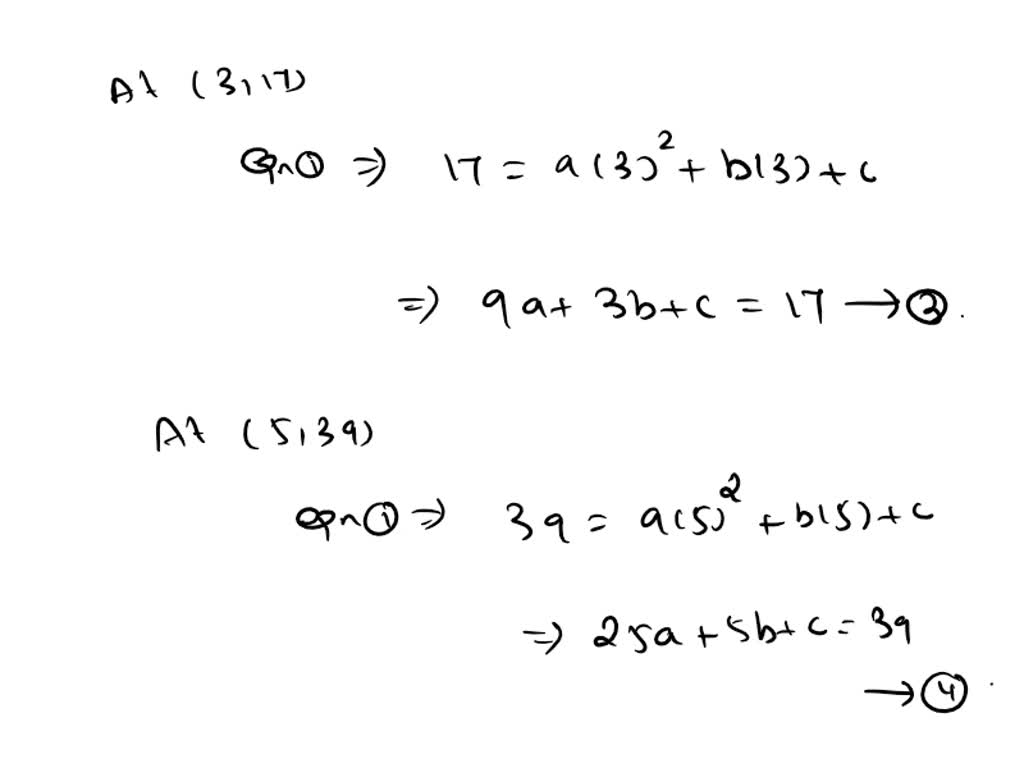 At (3,17)
eqn ① ⇒ 17 = a(3)² + b(3) + c
⇒ 9a + 3b + c = 17 → ③.
At (5,39)
eqn ① ⇒ 39 = a(5)² + b(5) + c
⇒ 25a + 5b + c = 39
→ ④